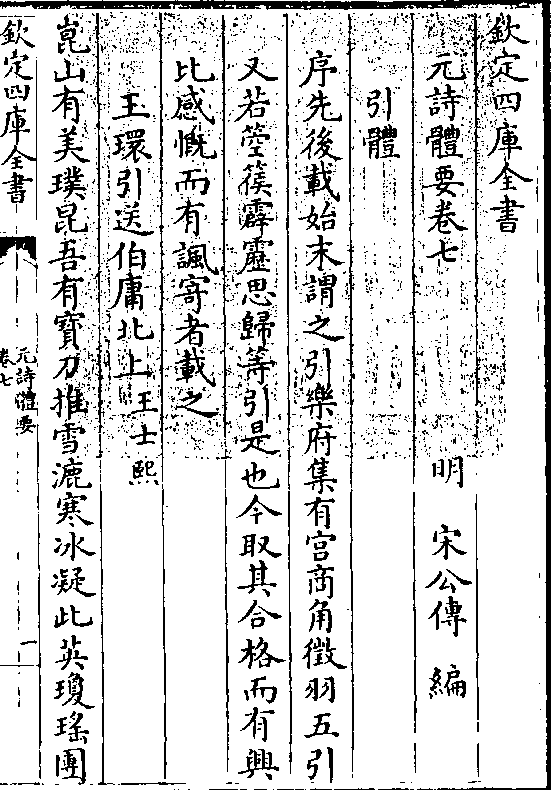 欽定四庫全書
元詩體要卷七
明 宋公傳 編
引體
序先後載始末謂之引樂府集有宫商角徵羽五引
又若箜篌霹靂思歸等引是也今取其合格而有興
比感慨而有諷寄者載之
玉環引送伯庸北上 王士熙
崑山有美璞昆吾有寶刀推雪漉寒冰凝此英瓊瑤團
欽定四庫全書
元詩體要
卷七
一